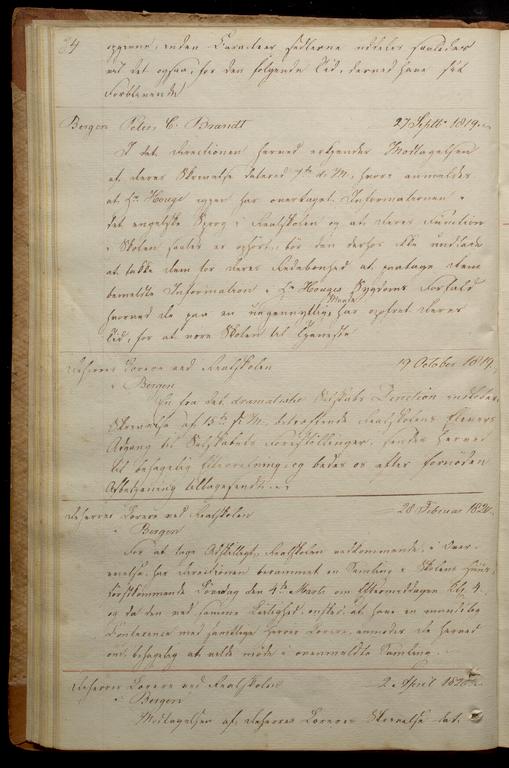 34
opgivne, inden Caracteer sedlerne uddeles saaledes
vil det ogsaa, for den følgende Tid, dermed have sit
Forblivende
Bergen Peter C. Brandt 27 Septbr 1819.
I det Directionen herved erkjender Modtagelsen
af Deres Skrivelse dateret 7de d: M:, hvori anmeldes
at Hr. Houge igjen har overtaget Informationen i
det engelske Sprog i Realskolen og at Deres Function
i Skolen saaledes er ophørt, bør den derhos ikke undlade
at takke Dem for Deres Redebonhed at paatage Dem
bemeldte Information i Hr. Houges Sygdoms Forfald
hvorved De paa en uegennyttig Maade har opofret Deres
Tid, for at være Skolen til Tjeneste
De herrer Lærere ved Realskolen 19 October 1819.
i Bergen
En fra det dramatiske Selskabs Direction indløben
Skrivelse af 15de d: M: betræffende Realskolens Elevers
Adgang til Selskabets Forestillinger, sendes herved
til behagelig Efterretning, og bedes os efter
tilbagesendt.
De herrer Lærere ved Realskolen 28 Februar 1820.
i Bergen
For at tage Adskilligt, Realskolen vedkommende, i Over-
veielse, har Directionen berammet en Samling i Skolens Huus,
førstkommende Løverdag den 4de Marts om Eftermiddagen Kl. 4.
og da den ved samme Leilighed ønsker at have en mundtlig
Conference med samtlige Herrer Lærere, anmodes De herved
om behagelig at vilde møde i ovenmeldte Samling.
De herrer Lærere ved Realskolen 2 April 1820
i Bergen
Modtagelsen af de herrer Læreres Skrivelse dat: